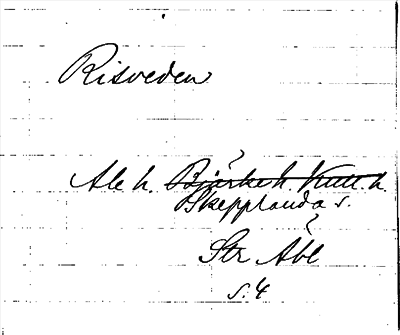 Risveden
Ale h. Bjärke h. Kull. h.
Skepplanda s.
Str Åbl
s. 4